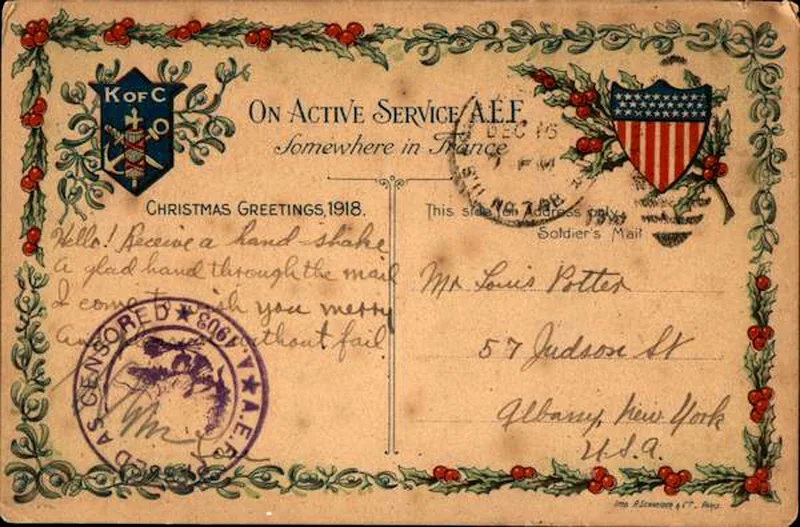 K OF C
ON ACTIVE SERVICE A.E.F.
Somewhere in France
DEC 16
CHRISTMAS GREETINGS, 1918.
This side for Address only.
Soldier's Mail
Hello! Receive a hand-shake
A glad hand through the mail
I come to wish you merry
without fail
Mr Louis Potter
57 Judson St
Albany, New York
U.S.A.
AS CENSORED ★ A.1903 ★ A.E.F.
IMP. A. SCHNEIDER & CIE, PARIS.